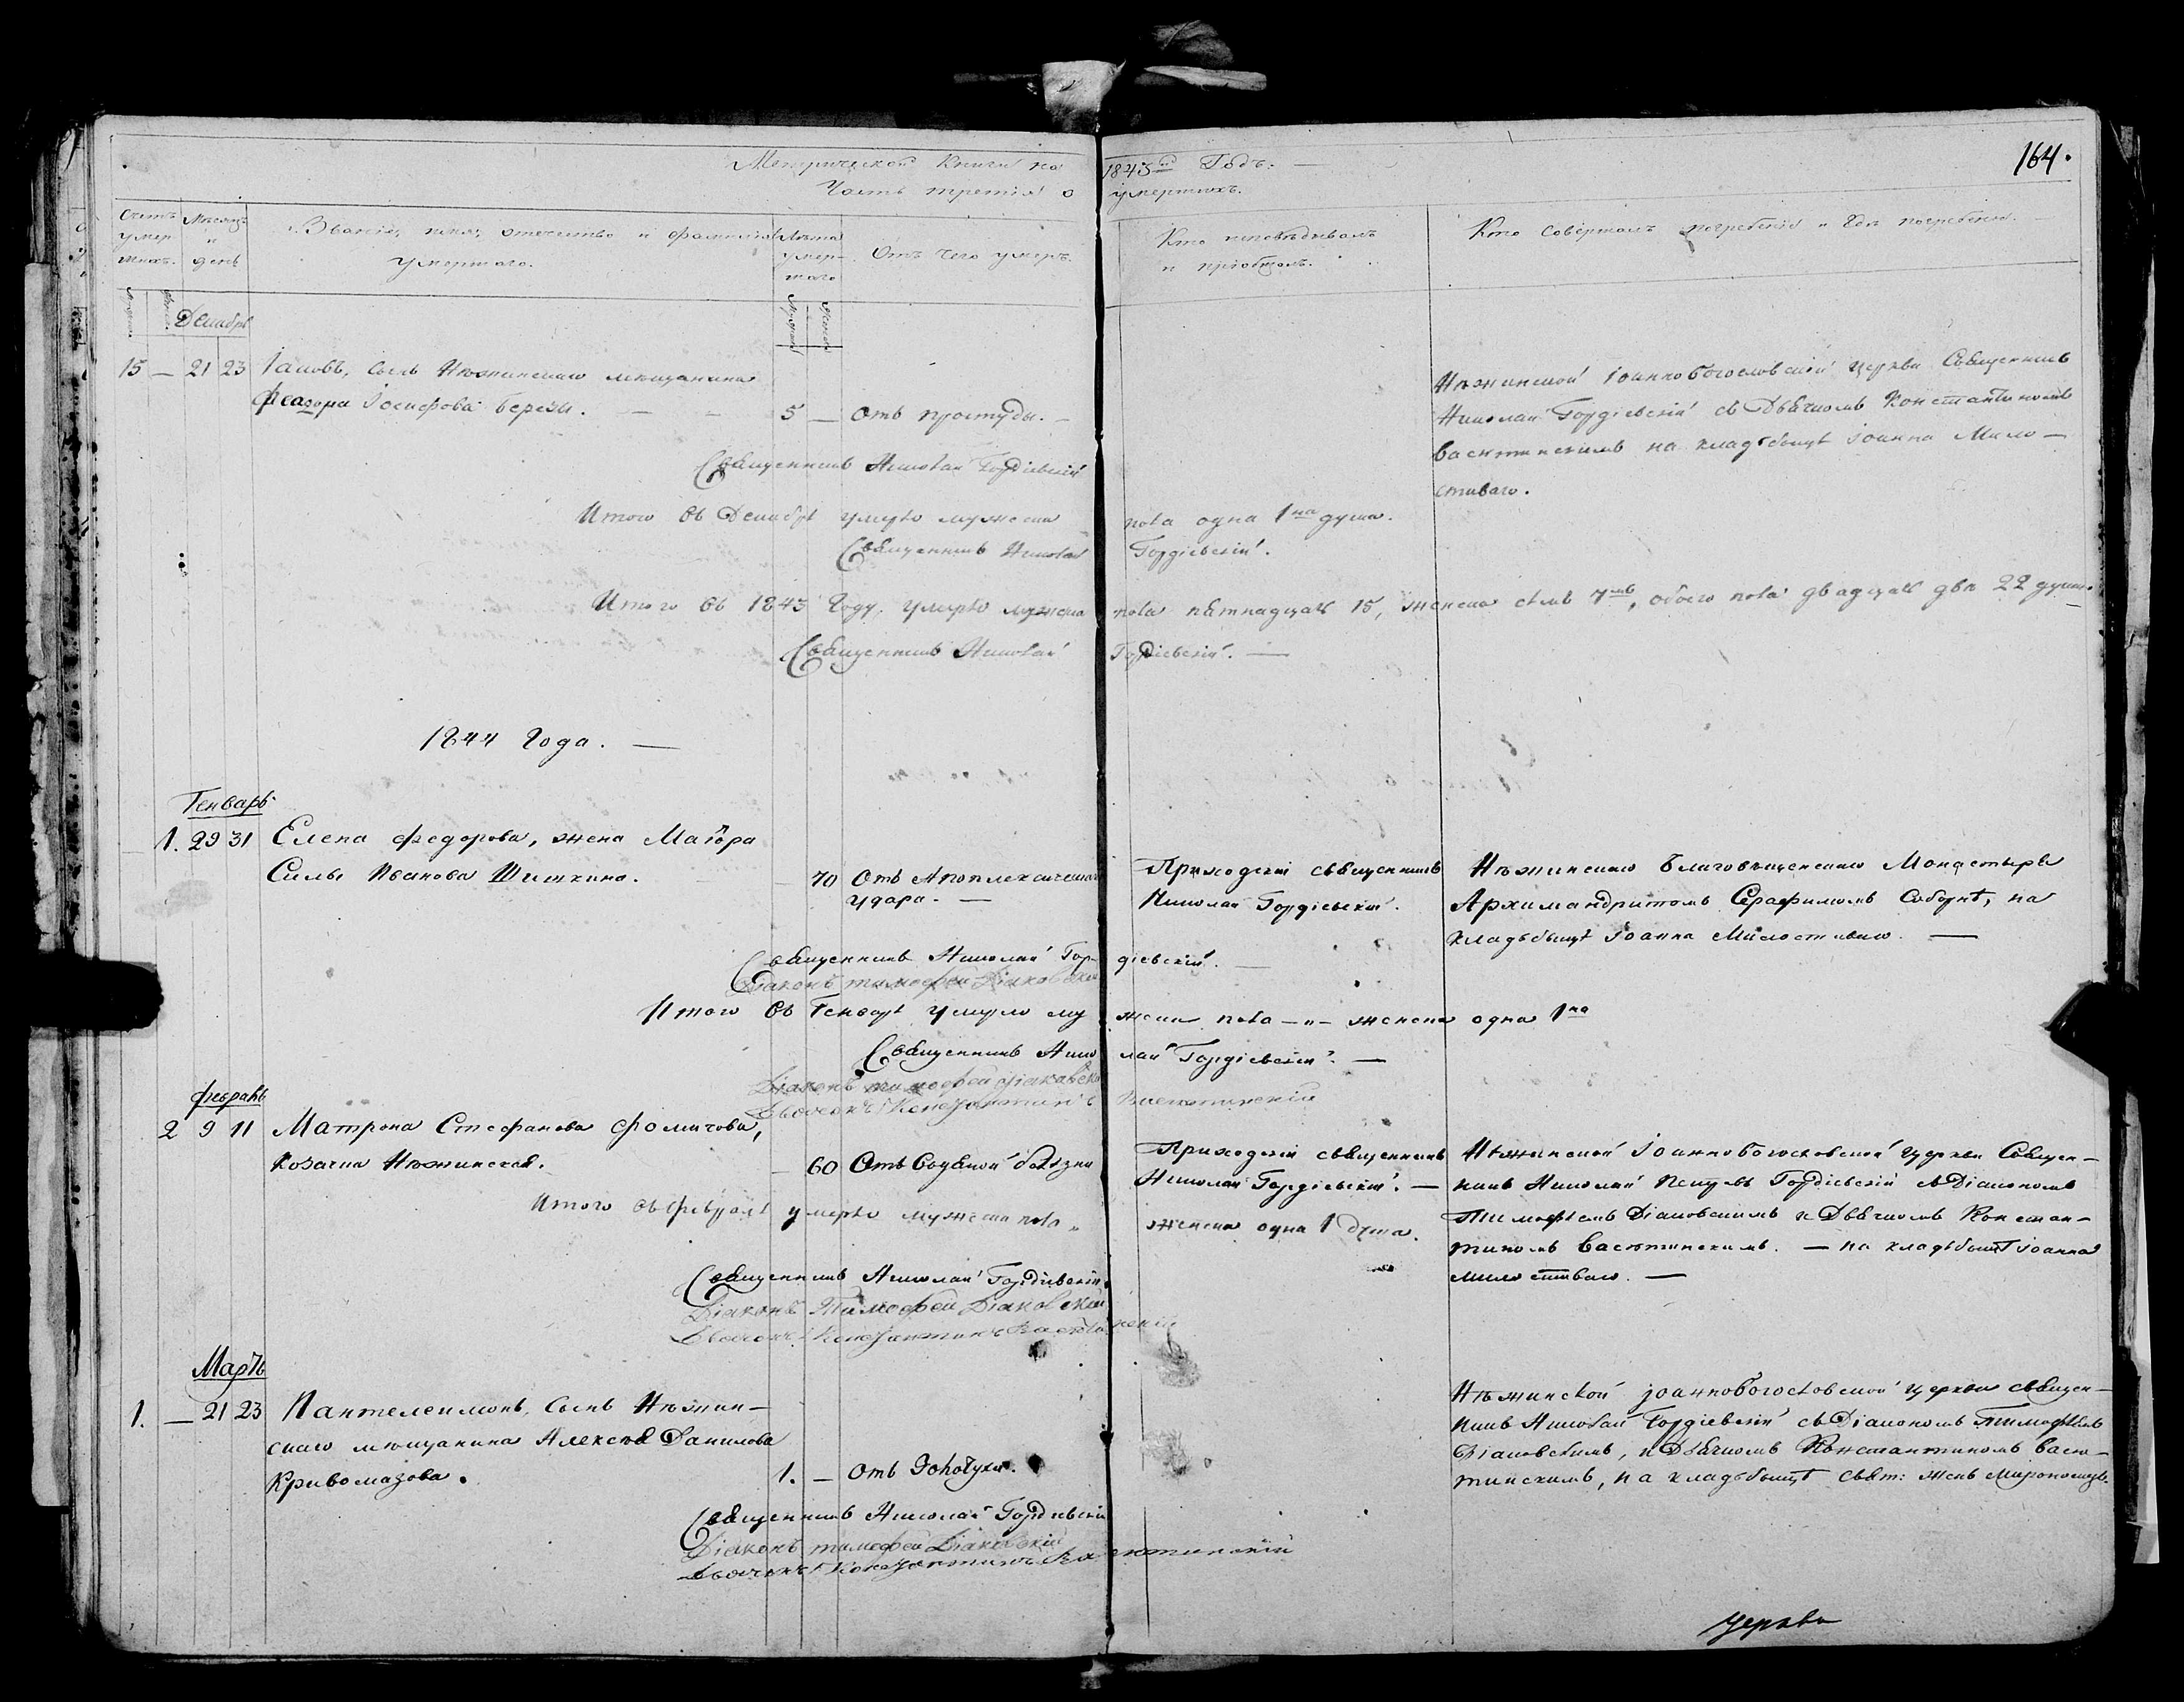 164.
Метрической Книги на 1843й Годъ.
Часть третія о умершихъ.
Счетъ умер-шихъ.
Месяцъ и день
Званіе, имя, отечество и фамилія умершаго.
Лѣта умер-шаго
Отъ чего умеръ.
Кто исповѣдывалъ и пріобщалъ.
Кто совершалъ погребеніе и где погребены.
Декабрь
15 — 21 23 Іаковъ, сынъ Нѣжинскаго мещанина
Феодора Іосифова Березы. — 5 — Отъ простуды. —
Нѣжинской Іоаннобогословской церкви Священникъ
Николай Гордіевскій съ Дьячкомъ Константиномъ
Васютинскимъ на кладбищѣ Іоанна Мило—
стиваго.
Священникъ Николай Гордіевскій
Итого въ Декабрѣ умерло мужеска пола одна 1на душа.
Священникъ Николай Гордіевскій.
Итого въ 1843 Году умерло мужска пола пятнадцать 15, женска семь 7мь, обоего пола двадцать двѣ 22 души.
Священникъ Николай Гордіевскій. —
1844 Года. —
Генварь
1. 29 31 Елена Федорова, жена Маіора
Силы Иванова Шишкина. — 70 Отъ Апоплексическаго
удара. —
Приходскій священникъ
Николай Гордіевскій.
Нѣжинскаго Благовѣщенскаго Монастыря
Архимандритомъ Серафимомъ Соборнѣ, на
кладбищѣ Іоанна Милостиваго. —
Священникъ Николай Гордіевскій. —
Діаконъ Тимофей Діаковскій
Итого въ Генварѣ умерло мужска пола —"— женска одна 1на
Священникъ Николай Гордіевскій. —
Діаконъ Тимофей Діаковскій
Дьячокъ Константинъ Васютинскій
Февраль
2 9 11 Матрона Стефанова Фомичова,
козачка Нѣжинская. — 60 Отъ Водяной болѣзни
Приходскій священникъ
Николай Гордіевскій. —
Нѣжинской Іоаннобогословской церкви Священ—
никъ Николай Гордіевскій съ Діакономъ
Тимофеемъ Діаковскимъ и Дьячкомъ Констан—
тиномъ Васютинскимъ. — на кладбищѣ Іоанна
Милостиваго. —
Итого въ Февралѣ умерло мужска пола " женска одна 1 душа.
Священникъ Николай Гордіевскій.
Діаконъ Тимофей Діаковскій
Дьячокъ Константинъ Васютинскій
Мартъ
1. — 21 23 Пантелеимонъ, Сынъ Нѣжин—
скаго мещанина Алексѣя Данилова
Кривомазова. 1. — Отъ Золотухи.
Нѣжинской Іоаннобогословской церкви священ—
никъ Николай Гордіевскій съ Діакономъ Тимофѣемъ
Діаковскимъ, и Дьячкомъ Константиномъ Васю—
тинскимъ, на кладбищѣ Свят: женъ Мироносицъ.
Священникъ Николай Гордіевскій
Діаконъ Тимофей Діаковскій
Дьячокъ Константинъ Васютинскій
Церкви